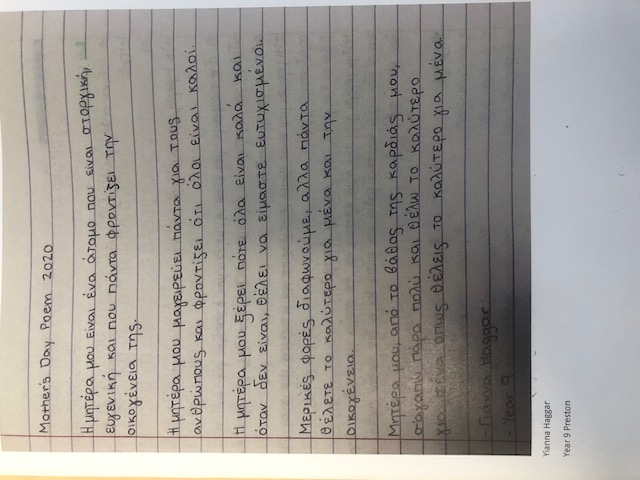 Mother's Day Poem 2020
Η μητέρα μου είναι ένα άτομο που είναι στοργική,
ευγενική και που πάντα φροντίζει την
οικογένεια της.
Η μητέρα μου μαγειρεύει πάντα για τους
ανθρώπους και φροντίζει ότι όλοι είναι καλοί.
Η μητέρα μου ξέρει πότε όλα είναι καλά και
όταν δεν είναι, θέλει να είμαστε ευτυχισμένοι.
Μερικές φορές διαφωνούμε, αλλα πάντα
θέλετε το καλύτερο για μένα και την
οικογένεια.
Μητέρα μου, από το βάθος της καρδιάς μου,
σάγαπω πάρα πολύ και θέλω το καλύτερο
για σένα οπως θέλεις το καλύτερο για μένα.
- Yianna Haggar
- Year 9
Yianna Haggar
Year 9 Preston